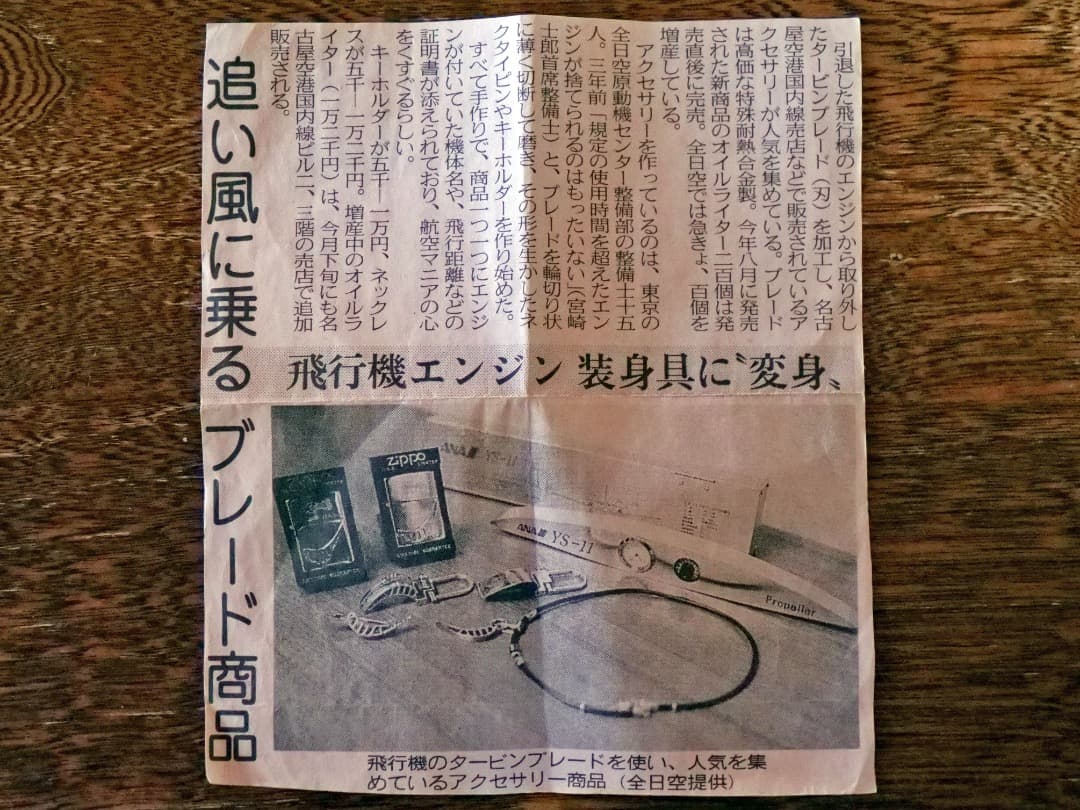 追い風に乗る ブレード商品
飛行機エンジン 装身具に〝変身〟
引退した飛行機のエンジンから取り外し
たタービンブレード（刃）を加工し、名古
屋空港国内線売店などで販売されているア
クセサリーが人気を集めている。ブレード
は高価な特殊耐熱合金製。今年八月に発売
された新商品のオイルライター二百個は発
売直後に完売。全日空では急きょ、百個を
増産している。
アクセサリーを作っているのは、東京の
全日空原動機センター整備部の整備士十五
人。三年前「規定の使用時間を超えたエン
ジンが捨てられるのはもったいない」（宮崎
士郎首席整備士）と、ブレードを輪切り状
に薄く切断して磨き、その形を生かしたネ
クタイピンやキーホルダーを作り始めた。
すべて手作りで、商品一つ一つにエンジ
ンが付いていた機体名や、飛行距離などの
証明書が添えられており、航空マニアの心
をくすぐるらしい。
キーホルダーが五千―一万円、ネックレ
スが五千―一万二千円。増産中のオイルラ
イター（一万二千円）は、今月下旬にも名
古屋空港国内線ビル二、三階の売店で追加
販売される。
zippo
ANA YS-11
ANA YS-11
Propeller
飛行機のタービンブレードを使い、人気を集
めているアクセサリー商品（全日空提供）